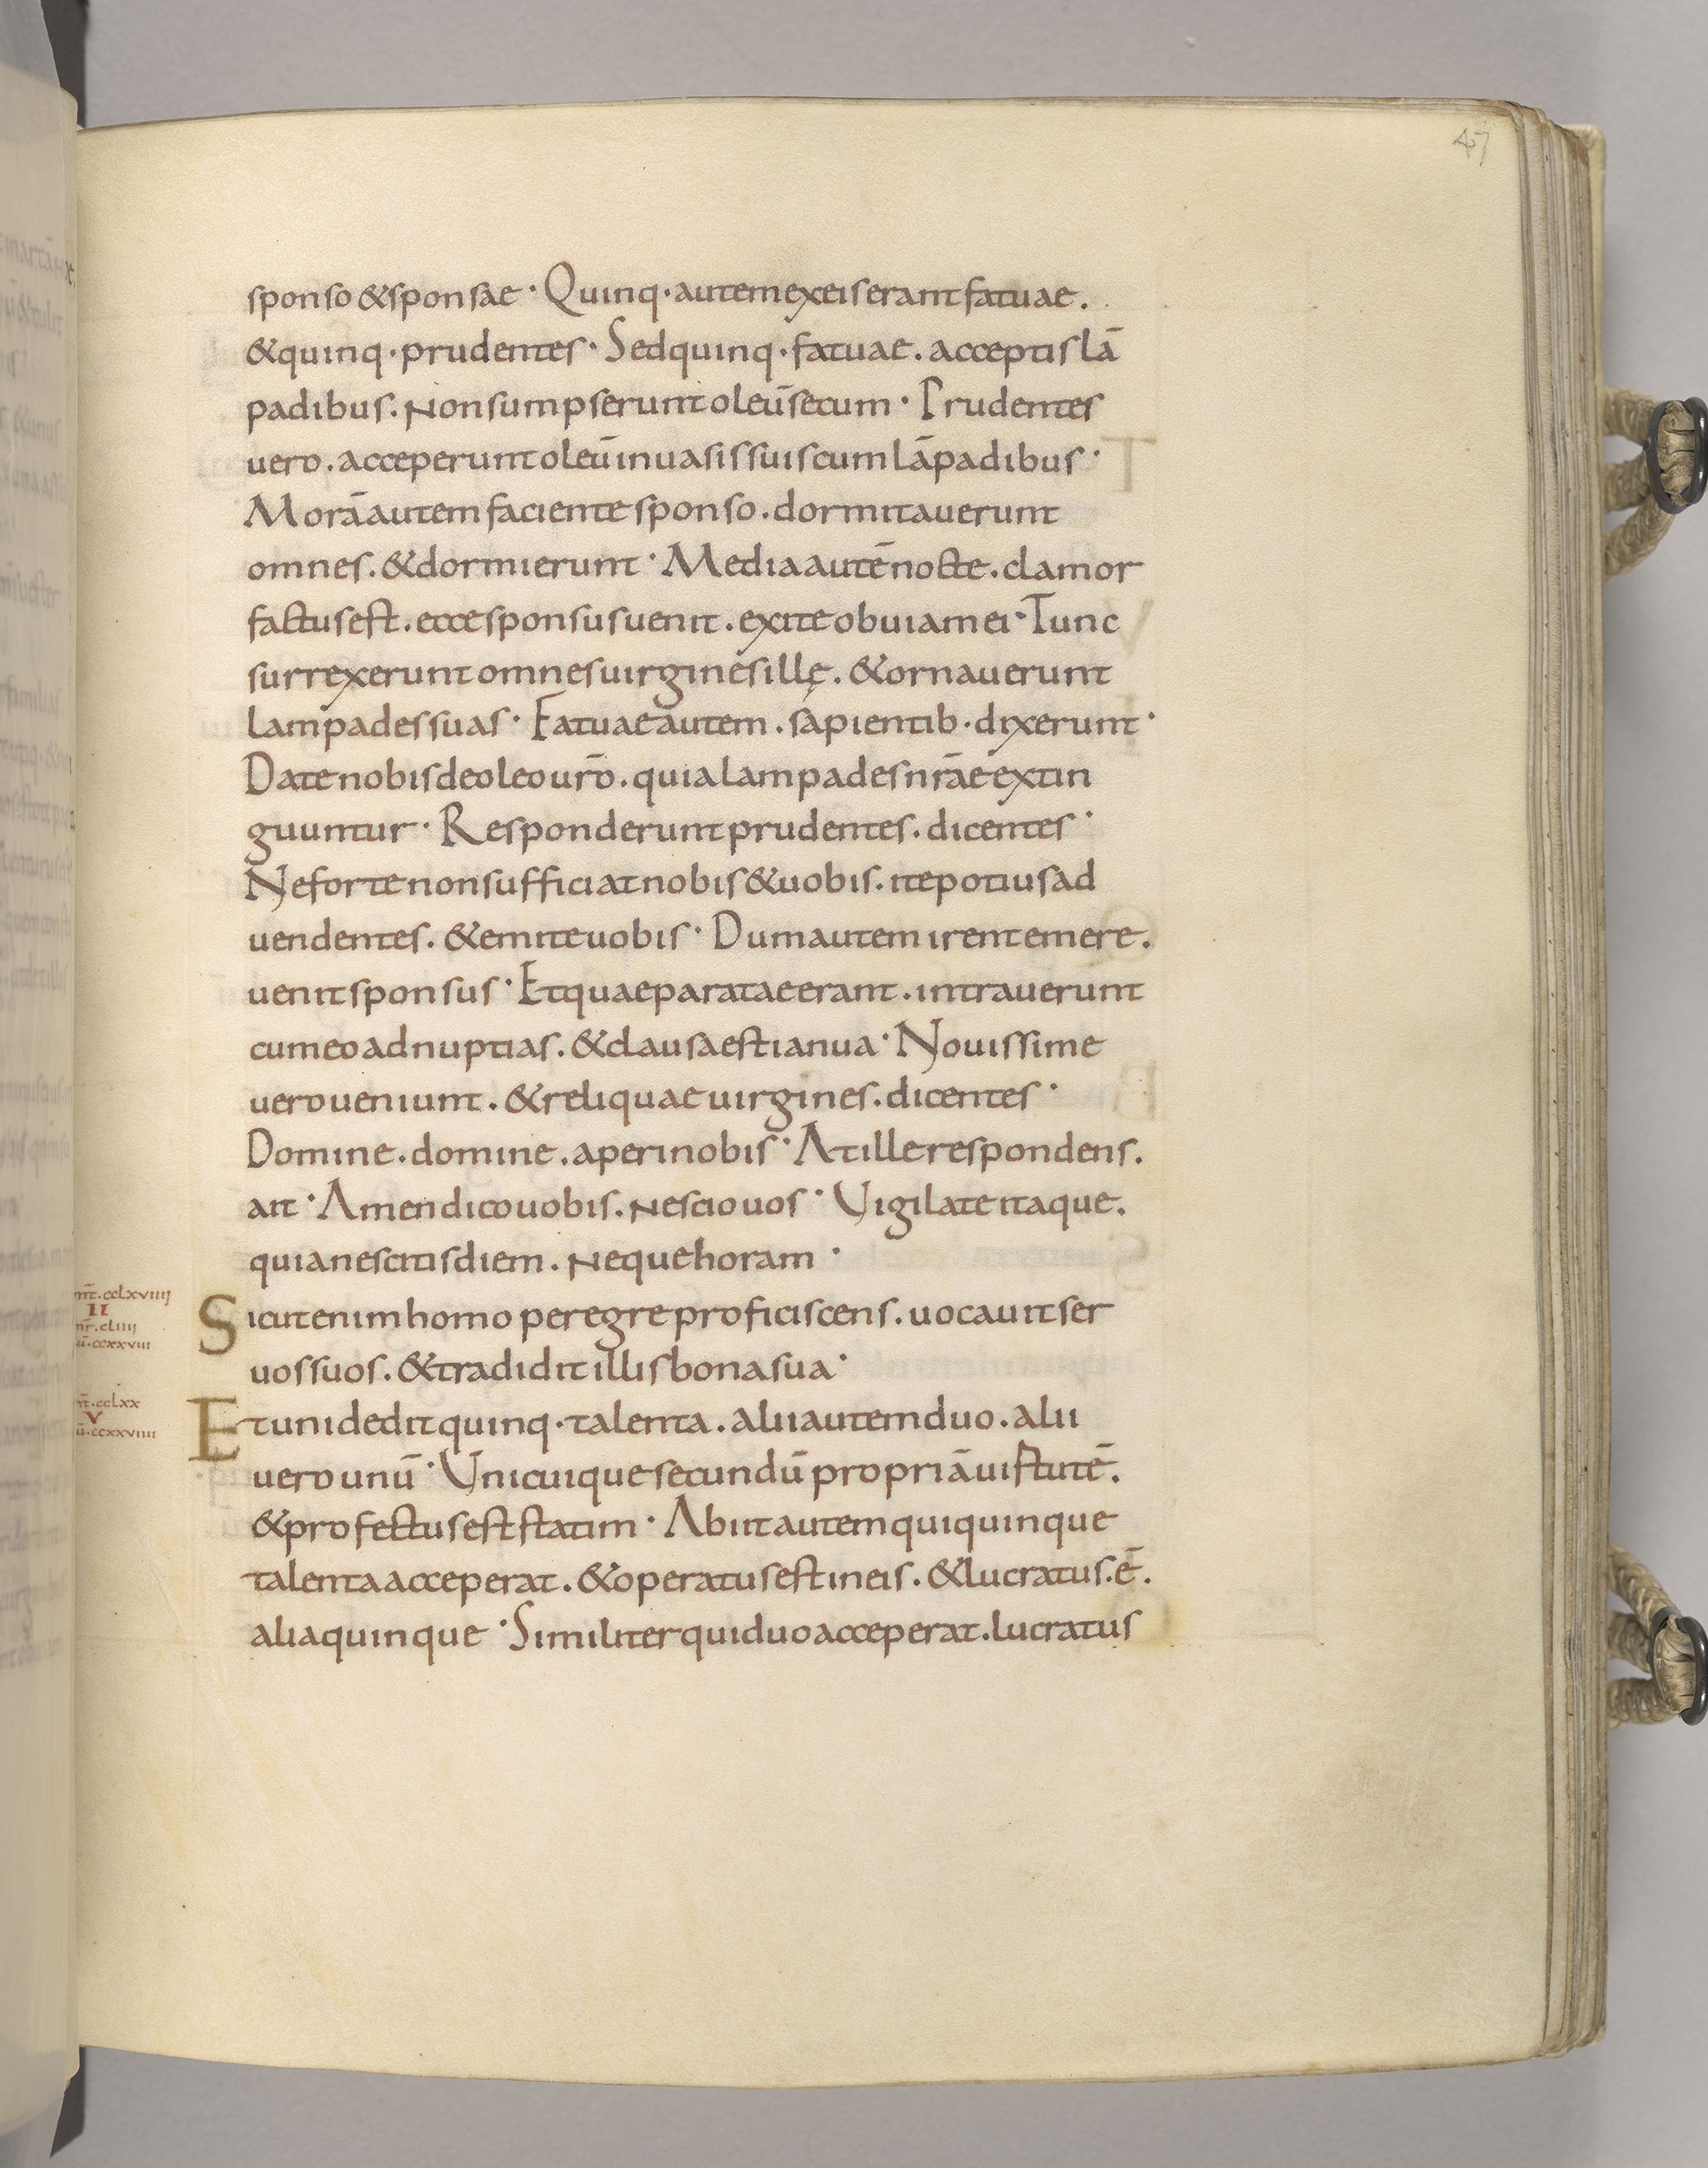 47
sponso & sponsae · Quinq· autem ex eis erant fatuae.
& quinq· prudentes · Sed quinq· fatuae. acceptis lā
padibus. Non sumpserunt oleū secum · Prudentes
uero. acceperunt oleū in uasis suis cum lāpadibus ·
Morā autem faciente sponso. dormitauerunt
omnes. & dormierunt · Media autē nocte. clamor
factus est. ecce sponsus uenit. exite obuiam ei · Tunc
surrexerunt omnes uirgines illę. & ornauerunt
lampades suas · Fatuae autem. sapientib· dixerunt ·
Date nobis de oleo ur̄o. quia lampades nr̄ae extin
guuntur · Responderunt prudentes. dicentes ·
Ne forte non sufficiat nobis & uobis. ite potius ad
uendentes. & emite uobis · Dum autem irent emere.
uenit sponsus · Et quae paratae erant. intrauerunt
cum eo ad nuptias. & clausa est ianua · Nouissime
uero ueniunt. & reliquae uirgines. dicentes ·
Domine. domine. aperi nobis · At ille respondens.
ait · Amen dico uobis. Nescio uos · Vigilate itaque.
quia nescitis diem. Neque horam ·
mt̄. cclxviiii
II
mr̄. cliiii
ū. ccxxviii
Sicut enim homo peregre proficiscens. uocauit ser
uos suos. & tradidit illis bona sua ·
mt̄. cclxx
V
ū. ccxxviiii
Et uni dedit quinq· talenta. alii autem duo. alii
uero unū · Vnicuique secundū propriā uirtutē.
& profectus est statim · Abiit autem qui quinque
talenta acceperat. & operatus est in eis. & lucratus. ē.
alia quinque · Similiter qui duo acceperat. lucratus